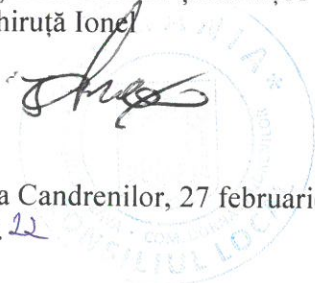 hiruță Ionel
a Candrenilor, 27 februari
22
ROMANIA *
CONSILIUL LOCAL